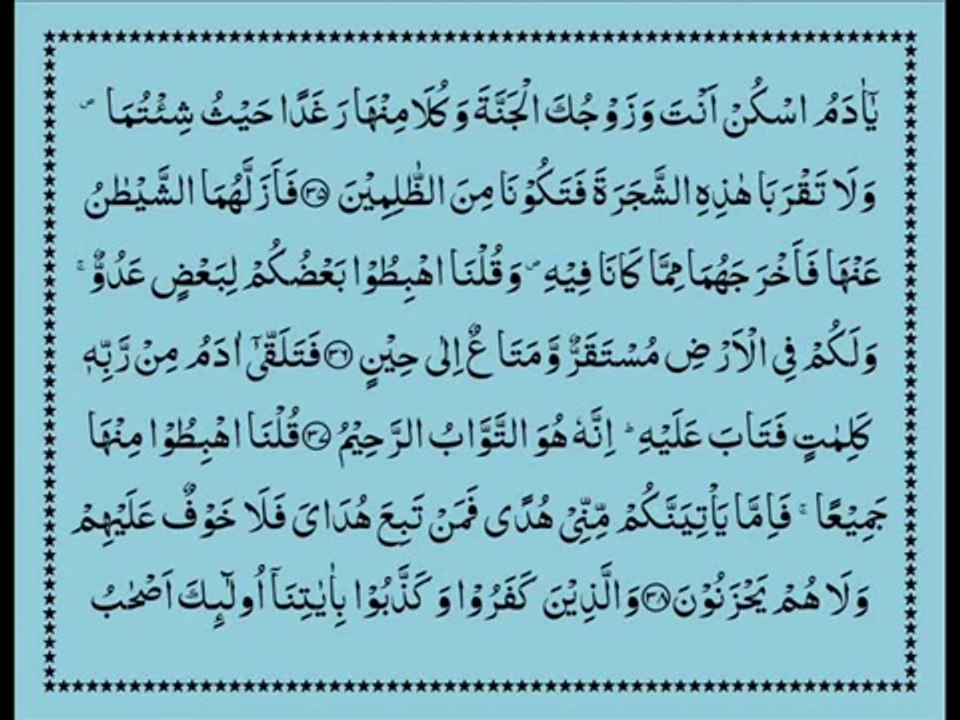 يٰٓاٰدَمُ اسْكُنْ اَنْتَ وَزَوْجُكَ الْجَنَّةَ وَكُلَا مِنْهَا رَغَدًا حَيْثُ شِئْتُمَا ۪
وَلَا تَقْرَبَا هٰذِهِ الشَّجَرَةَ فَتَكُوْنَا مِنَ الظّٰلِمِيْنَ ﴿۳۵﴾ فَاَزَلَّهُمَا الشَّيْطٰنُ
عَنْهَا فَاَخْرَجَهُمَا مِمَّا كَانَا فِيْهِ ۪ وَقُلْنَا اهْبِطُوْا بَعْضُكُمْ لِبَعْضٍ عَدُوٌّ ۚ
وَلَكُمْ فِى الْاَرْضِ مُسْتَقَرٌّ وَّمَتَاعٌ اِلٰى حِيْنٍ ﴿۳۶﴾ فَتَلَقّٰٓى اٰدَمُ مِنْ رَّبِّهٖ
كَلِمٰتٍ فَتَابَ عَلَيْهِ ؕ اِنَّهٗ هُوَ التَّوَّابُ الرَّحِيْمُ ﴿۳۷﴾ قُلْنَا اهْبِطُوْا مِنْهَا
جَمِيْعًا ۚ فَاِمَّا يَاْتِيَنَّكُمْ مِّنِّىْ هُدًى فَمَنْ تَبِعَ هُدَاىَ فَلَا خَوْفٌ عَلَيْهِمْ
وَلَا هُمْ يَحْزَنُوْنَ ﴿۳۸﴾ وَالَّذِيْنَ كَفَرُوْا وَكَذَّبُوْا بِاٰيٰتِنَآ اُولٰٓئِكَ اَصْحٰبُ